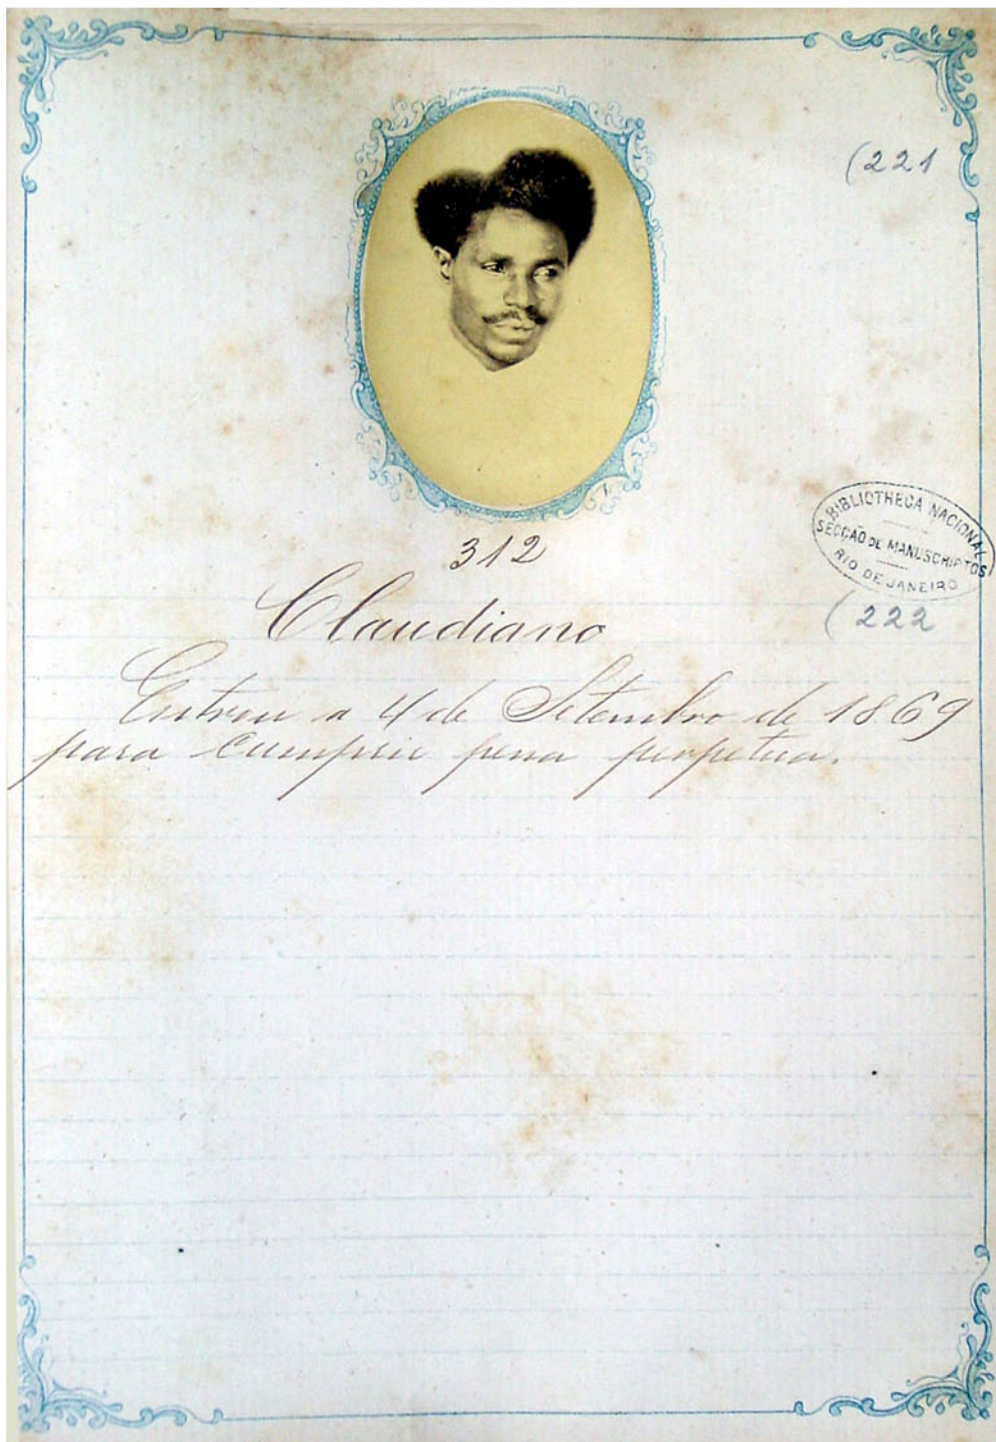 (221
BIBLIOTHECA NACIONAL
SECÇÃO DE MANUSCRIPTOS
RIO DE JANEIRO
312
Claudiano
(222
Entrou a 4 de Setembro de 1869
para cumprir pena perpetua.